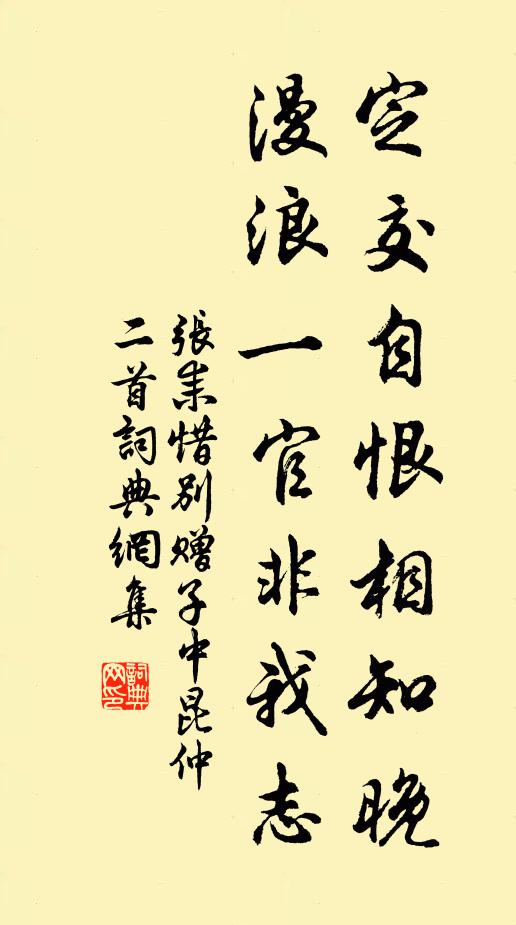 定交自恨相知晚
漫浪一官非我志
張耒惜別贈子中昆仲
二首詞典網集
詞典
网印